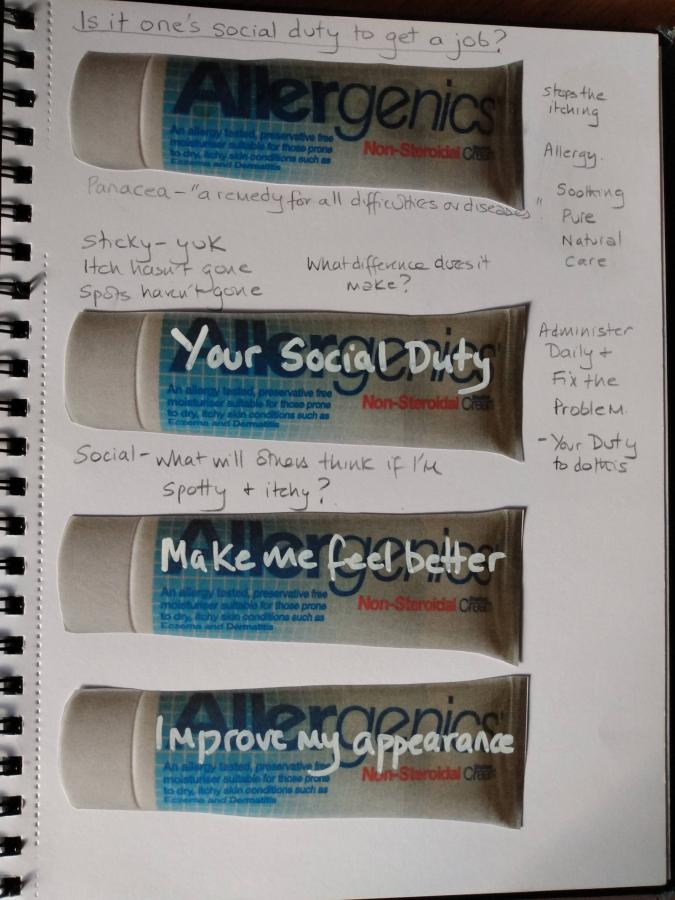 Is it one's social duty to get a job?
Allergenics
An allergy tested, preservative free
moisturiser suitable for those prone
to dry, itchy skin conditions such as
Eczema and Dermatitis
Non-Steroidal Cream
stops the
itching
Allergy.
Soothing
Pure
Natural
Care
Panacea - "a remedy for all difficulties or diseases"
Sticky - yuk
Itch hasn't gone
Spots haven't gone
What difference does it
make?
Allergenics
Your Social Duty
An allergy tested, preservative free
moisturiser suitable for those prone
to dry, itchy skin conditions such as
Eczema and Dermatitis
Non-Steroidal Cream
Administer
Daily +
Fix the
Problem.
- Your Duty
to do this
Social - what will others think if I'm
spotty + itchy?
Allergenics
Make me feel better
An allergy tested, preservative free
moisturiser suitable for those prone
to dry, itchy skin conditions such as
Eczema and Dermatitis
Non-Steroidal Cream
Allergenics
Improve my appearance
An allergy tested, preservative free
moisturiser suitable for those prone
to dry, itchy skin conditions such as
Eczema and Dermatitis
Non-Steroidal Cream